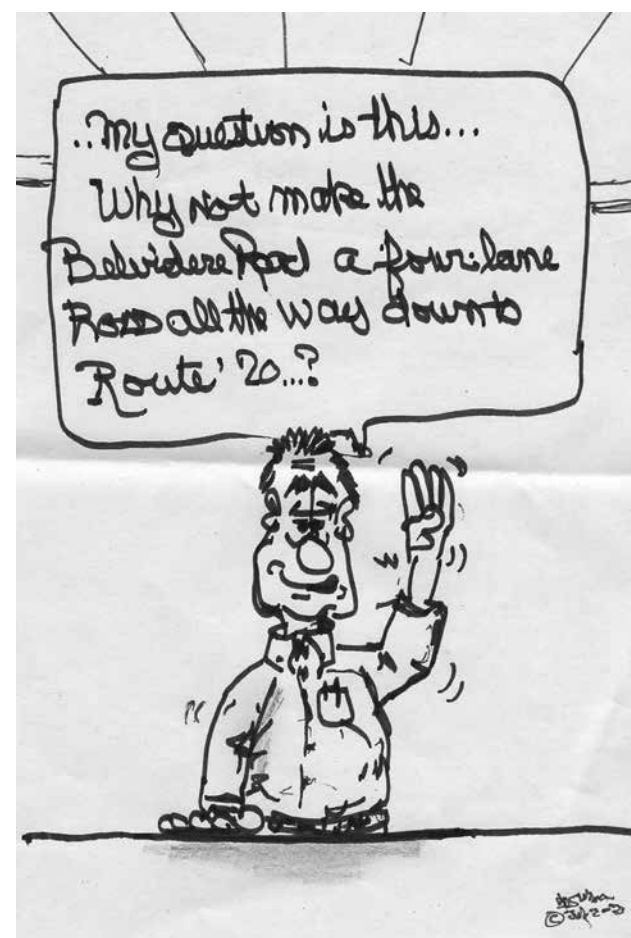 ..My question is this...
Why not make the
Belvidere Road a four-lane
Road all the way down to
Route' 20...?
©